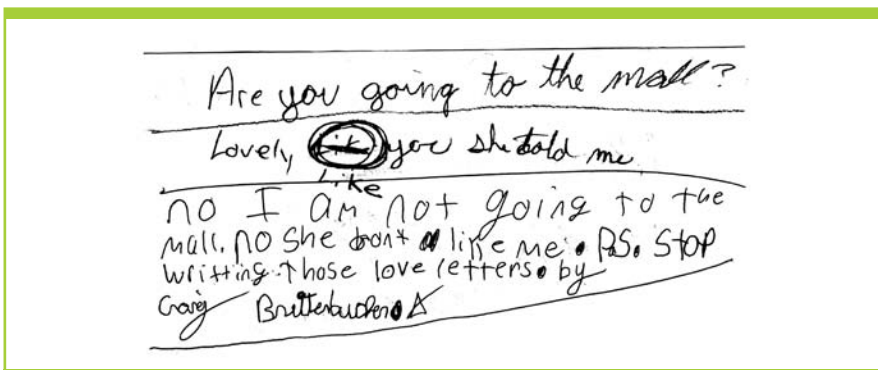 Are you going to the mall?
Lovely, you she told me
Like
no I am not going to the
mall. no she dont like me. P.S. STOP
writting those love letters. by
Craig